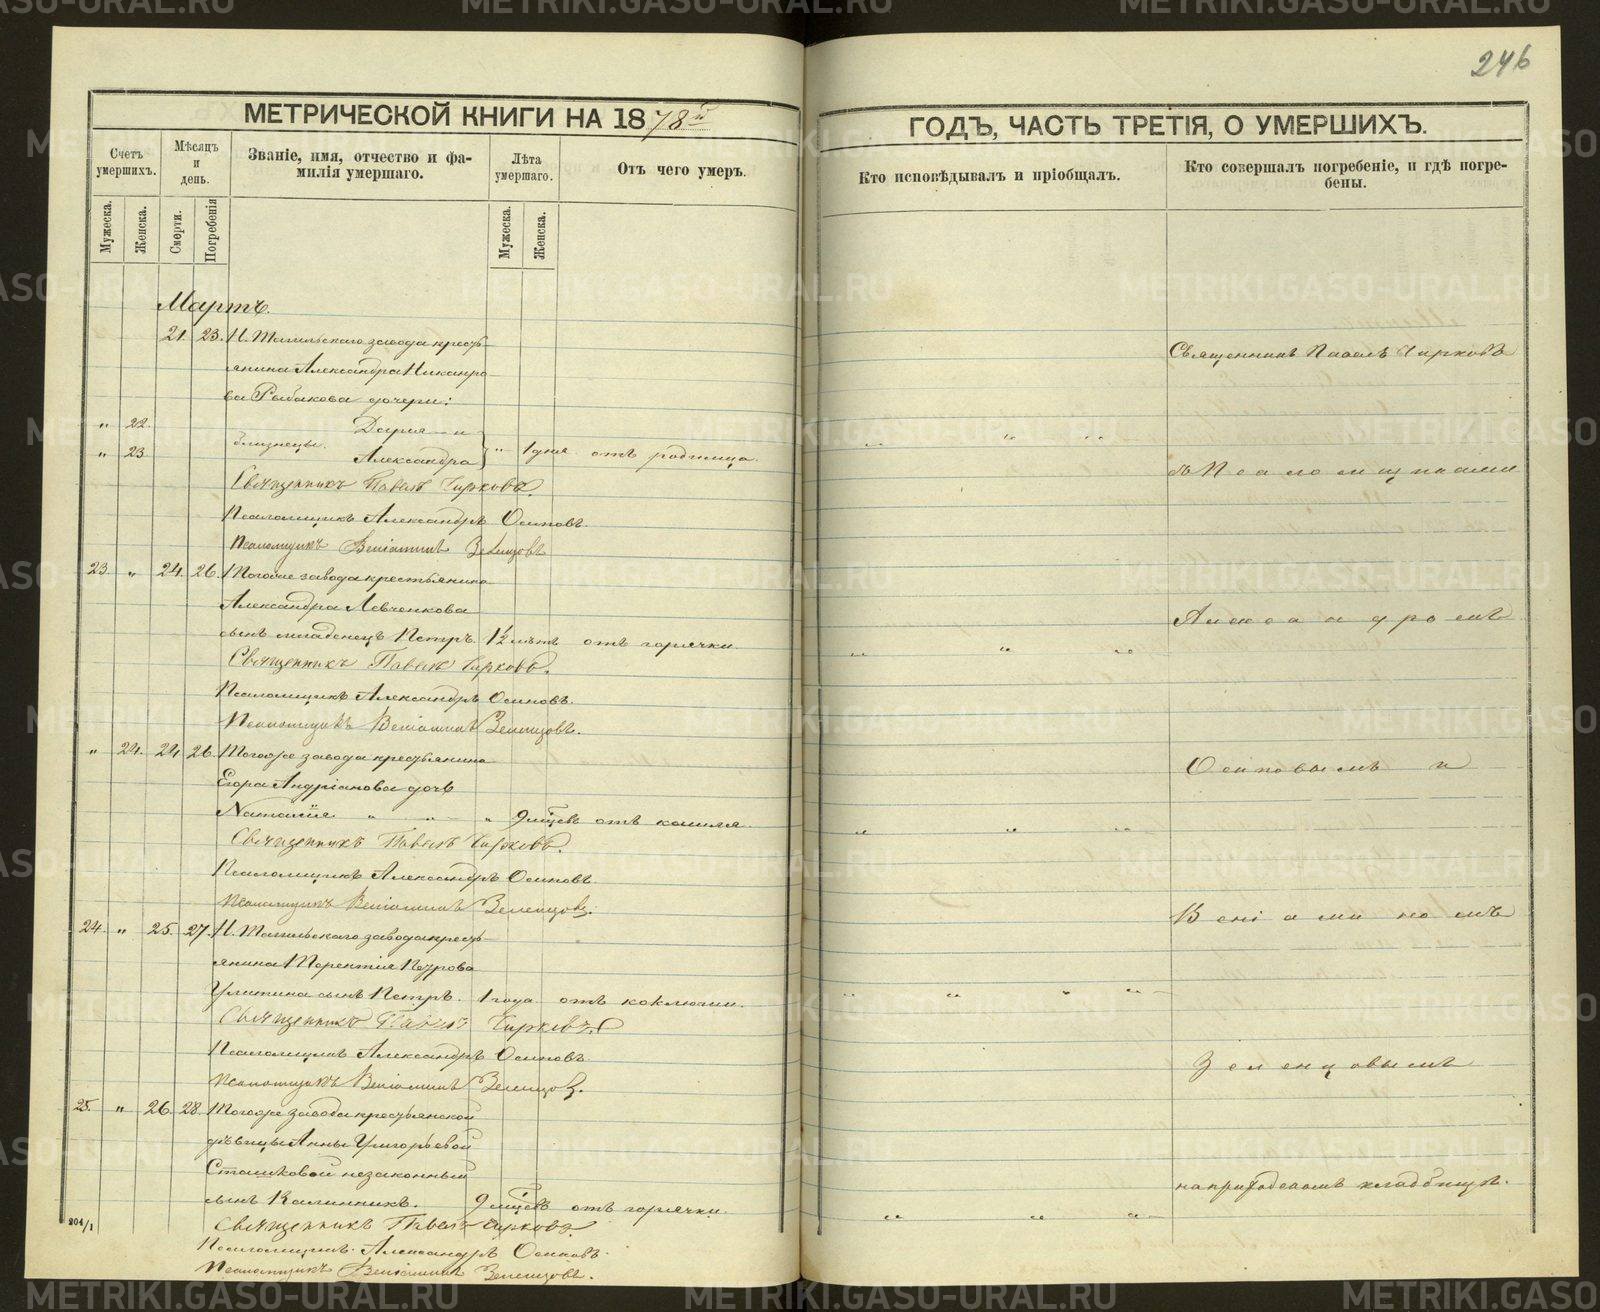 246
МЕТРИЧЕСКОЙ КНИГИ НА 1878й
ГОДЪ, ЧАСТЬ ТРЕТІЯ, О УМЕРШИХЪ.
Счетъ умершихъ.
Мужеска.
Женска.
Мѣсяцъ и день.
Смерти.
Погребенія
Званіе, имя, отчество и фа-
милія умершаго.
Лѣта умершаго.
Мужеска.
Женска.
Отъ чего умеръ.
Кто исповѣдывалъ и пріобщалъ.
Кто совершалъ погребеніе, и гдѣ погре-
бены.
Мартъ.
21. 23. Н. Тагильскаго завода кресть-
янина Александра Никанро-
ва Рыбакова дочери:
" 22. Дарья и
близнецы. " 1 дня отъ родимца.
" 23 Александра
Священникъ Павелъ Чирковъ.
Псаломщикъ Александръ Осиповъ.
Псаломщикъ Веніаминъ Зеленцовъ
23. " 24. 26. Тогоже завода крестьянина
Александра Левченкова
сынъ младенецъ Петръ. 1½ лѣтъ отъ горячки
Священникъ Павелъ Чирковъ.
Псаломщикъ Александръ Осиповъ.
Псаломщикъ Веніаминъ Зеленцовъ.
" 24. 24. 26. Тогоже завода крестьянина
Егора Андріанова дочь
Наталія " " " 9 мѣсѣцевъ отъ кашля.
Священникъ Павелъ Чирковъ.
Псаломщикъ Александръ Осиповъ.
Псаломщикъ Веніаминъ Зеленцовъ.
24. " 25. 27. Н. Тагильскаго завода кресть-
янина Терентія Петрова
Улитина сынъ Петръ. 1 года отъ коклюши.
Священникъ Павелъ Чирковъ.
Псаломщикъ Александръ Осиповъ.
Псаломщикъ Веніаминъ Зеленцовъ.
25. " 26. 28. Тогоже завода крестьянской
дѣвицы Анны Григорьевой
Сташковой незаконный
сынъ Калинникъ. 9 мѣсѣцевъ отъ горячки.
Священникъ Павелъ Чирковъ.
Псаломщикъ Александръ Осиповъ.
Псаломщикъ Веніаминъ Зеленцовъ.
204/1
Священникъ Павелъ Чирковъ
съ Псаломщиками
Александромъ
Осиповымъ и
Веніаминомъ
Зеленцовымъ
на приходскомъ кладбищѣ.
METRIKI.GASO-URAL.RU